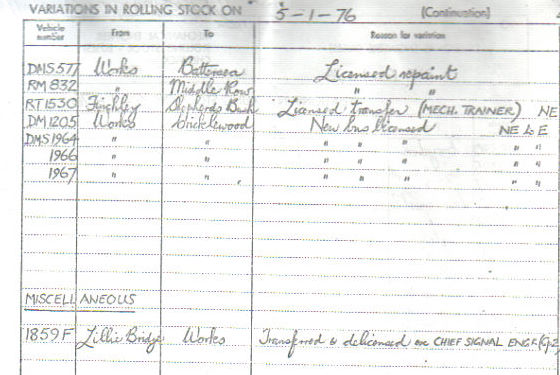 VARIATIONS IN ROLLING STOCK ON 5-1-76 (Continuation)
Vehicle number From To Reason for variation
DMS 577 Works Battersea Licensed repaint
RM 832 " Middle Row " "
RT1530 Finchley Shepherds Bush Licensed transfer (MECH. TRAINER) NE
DM 1205 Works Cricklewood New bus licensed NE L E
DMS 1964 " " " " " " "
1966 " " " " " " "
1967 " " " " " " "
MISCELLANEOUS
1859F Lillie Bridge Works Transferred & delicensed ex CHIEF SIGNAL ENGR (Gp2